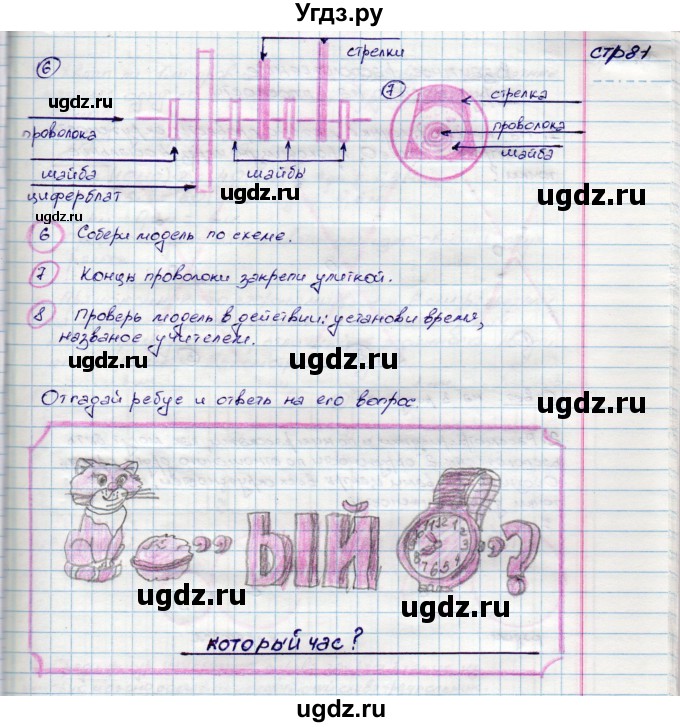 Угдз.ру
стр 81
6
стрелки
ugdz.ru
7
стрелка
проволока
проволока
шайба
шайба
шайбы
циферблат
ugdz.ru
ugdz.ru
ugdz.ru
6 Собери модель по схеме.
7 Концы проволоки закрепи улиткой.
8 Проверь модель в действии: установи время,
названое учителем.
ugdz.ru
ugdz.ru
ugdz.ru
Отгадай ребус и ответь на его вопрос.
ugdz.ru
ugdz.ru
,, ЫЙ
12 1 2 3 4 5 6 7 8 9 10 11
,, ?
ugdz.ru
ugdz.ru
который час?
ugdz.ru
ugdz.ru